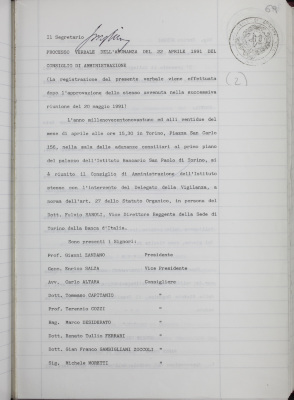 64
Il Segretario
(2)
PROCESSO VERBALE DELL'ADUNANZA DEL 22 APRILE 1991 DEL
CONSIGLIO DI AMMINISTRAZIONE
(La registrazione del presente verbale viene effettuata
dopo l'approvazione dello stesso avvenuta nella successiva
riunione del 20 maggio 1991)
L'anno millenovecentonovantuno ed alli ventidue del
mese di aprile alle ore 15,30 in Torino, Piazza San Carlo
156, nella sala delle adunanze consiliari al primo piano
del palazzo dell'Istituto Bancario San Paolo di Torino, si
è riunito il Consiglio di Amministrazione dell'Istituto
stesso con l'intervento del Delegato della Vigilanza, a
norma dell'art. 27 dello Statuto Organico, in persona del
Dott. Fulvio, Vice Direttore Reggente della Sede di
Torino della Banca d'Italia.
Sono presenti i Signori:
Prof. Gianni ZANDANO Presidente
Vice Presidente
Avv. Carlo ALTARA Consigliere
Dott. Tommaso CAPITANIO "
Prof. Terenzio COZZI "
Rag. Marco DESIDERATO "
Dott. Renato Tullio FERRARI "
Dott. Gian Franco GAMBIGLIANI ZOCCOLI "
Sig. Michele MORETTI "